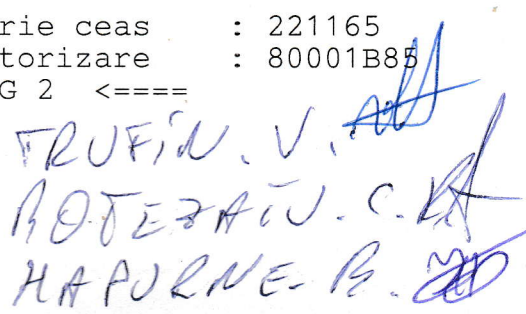 rie ceas : 221165
torizare : 80001B85
G 2 <====
TRUFIN. V.
BOTEZATU. C.
HAPURNE. B.